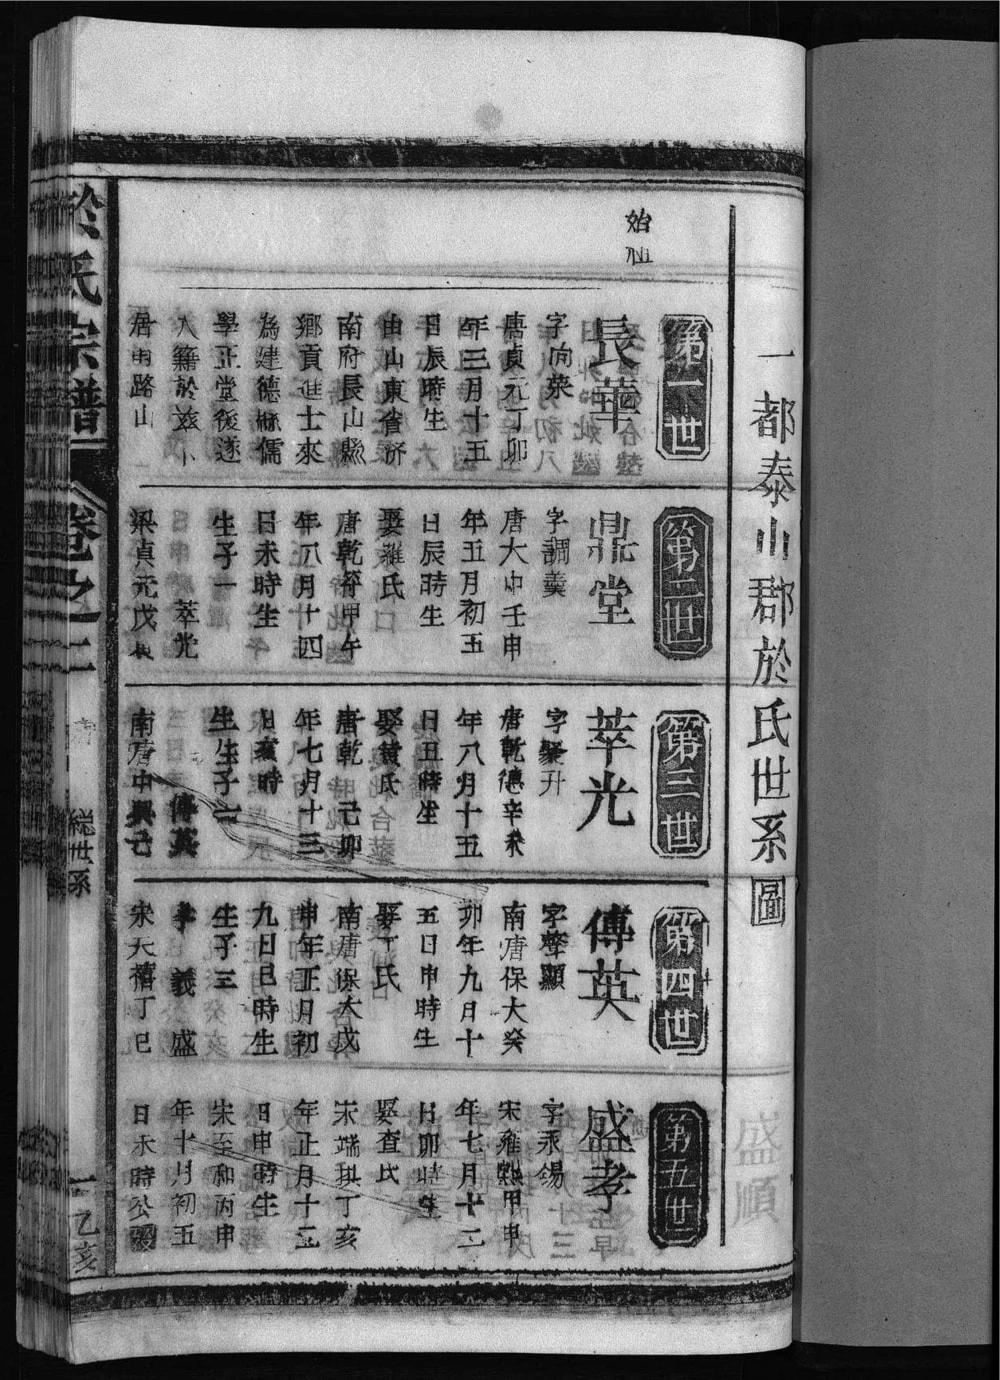 一都泰山郡於氏世系圖
始祖
第一世
長華
字向榮
唐貞元丁卯
年三月十五
日辰時生
由山東省濟
南府長山縣
鄉貢進士來
為建德縣儒
學正堂後遂
入籍於茲卜
居甫路山
第二世
鼎堂
字調羹
唐大中壬申
年五月初五
日辰時生
娶羅氏
唐乾符甲午
年八月十四
日未時生
生子一
萃光
梁貞元戊寅
第三世
萃光
字聚升
唐乾德辛未
年八月十五
日丑時生
娶黃氏
唐乾 己卯
年七月十三
日亥時
生 生子一
傳英
南唐中興己
第四世
傳英
字聲顯
南唐保大癸
卯年九月十
五日申時生
娶丁氏
南唐保大戊
申年正月初
九日巳時生
生子三
孝 義 盛
宋天禧丁巳
第五世
盛孝
字永錫
宋雍熙甲申
年七月十二
日卯時生
娶查氏
宋端琪丁亥
年正月十五
日申時生
宋至和丙申
年十月初五
日未時公
於氏宗譜
卷之二
總世系
一
乙亥
盛順